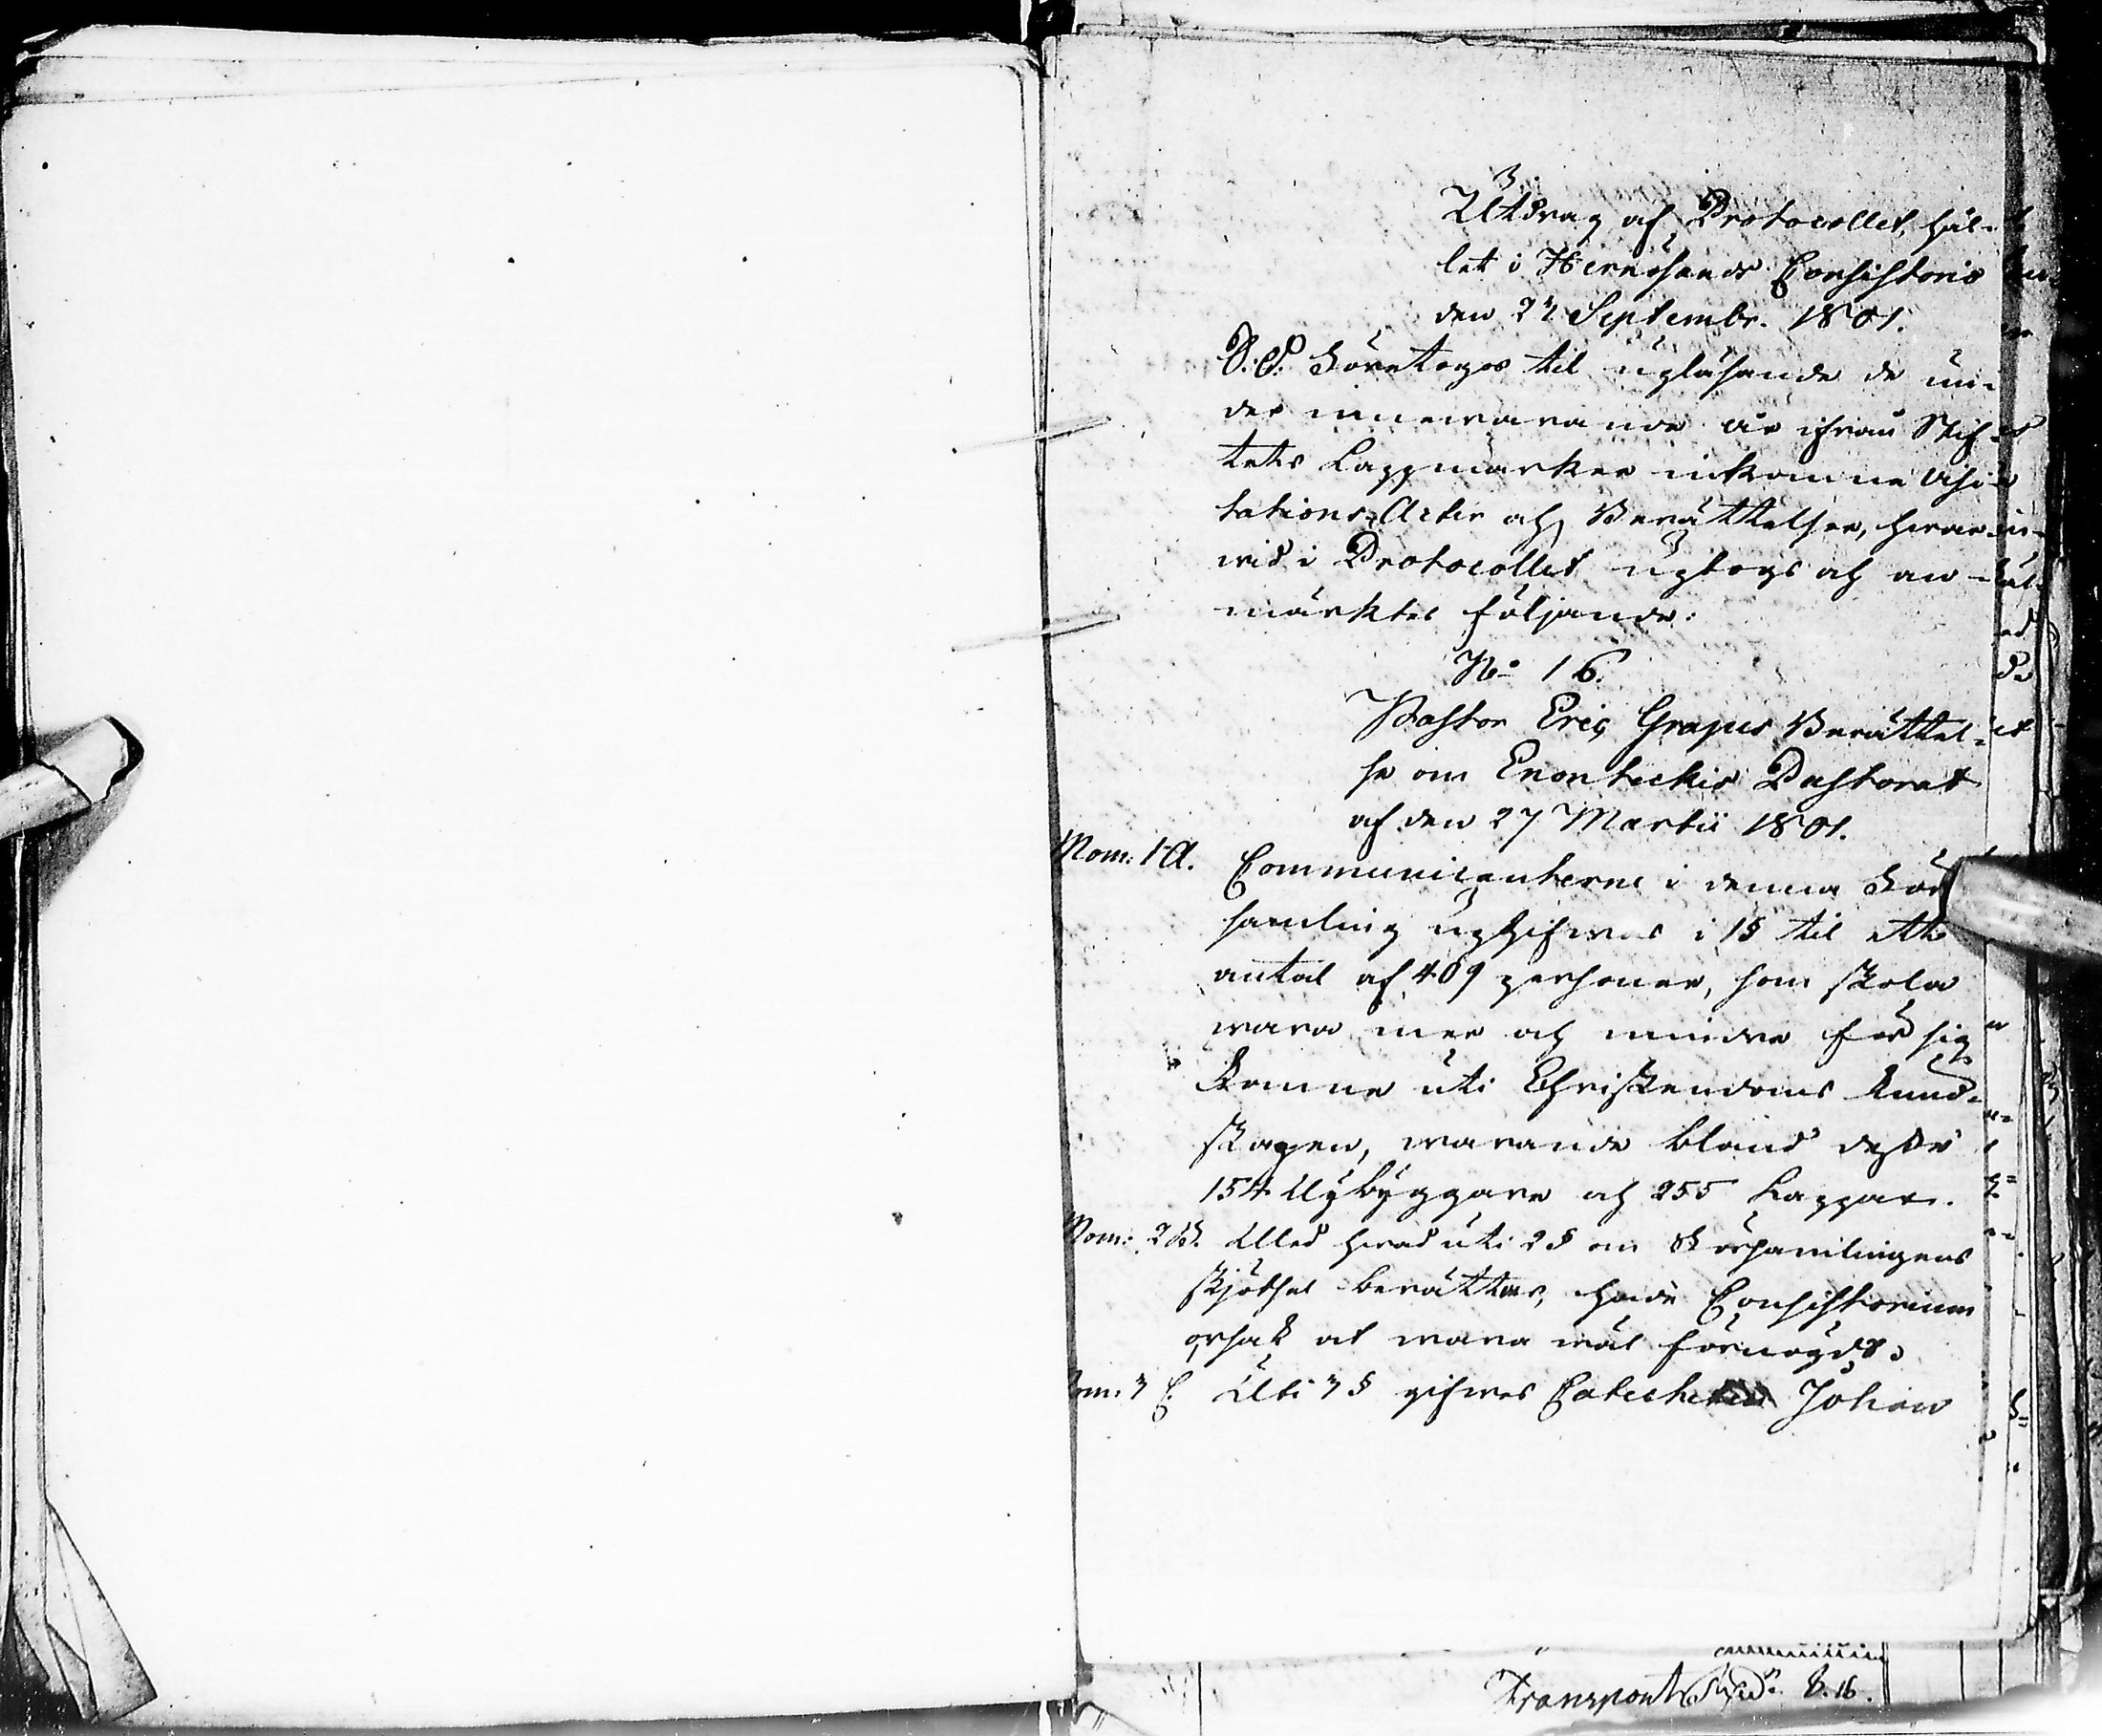 3.
Utdrag af Protocollet, hål-
let i Hernösands Consistorio
den 23 Septembr. 1801.
S. D. Företogos til upläsande de un-
der innewarande år ifrån Stif-
tets Lappmarker inkomne Visi-
tations-Acter och Berättelser, hwar-
wid i Protocollet uptogs och an-
märktes följande:
No 16.
Pastor Eric Grapes Berättel-
se om Enontekis Pastorat
af den 27 Martii 1801.
Mom: 1 A. Communicanterne i denna För
samling upgifwes i 1 § til ett
antal af 409 personer, som skola
wara mer och mindre för sig
komne uti Christendoms kund-
skapen, warande bland desse
154 Nybyggare och 255 Lappar.
Mom: 2 B. Med hwad uti 2 § om Församlingens
skjötsel berättas, hade Consistorium
orsak at wara wäl förnögdt.
om: 3 C. Uti 3 § gifwes Catecheten Johan
Transport 8.16.